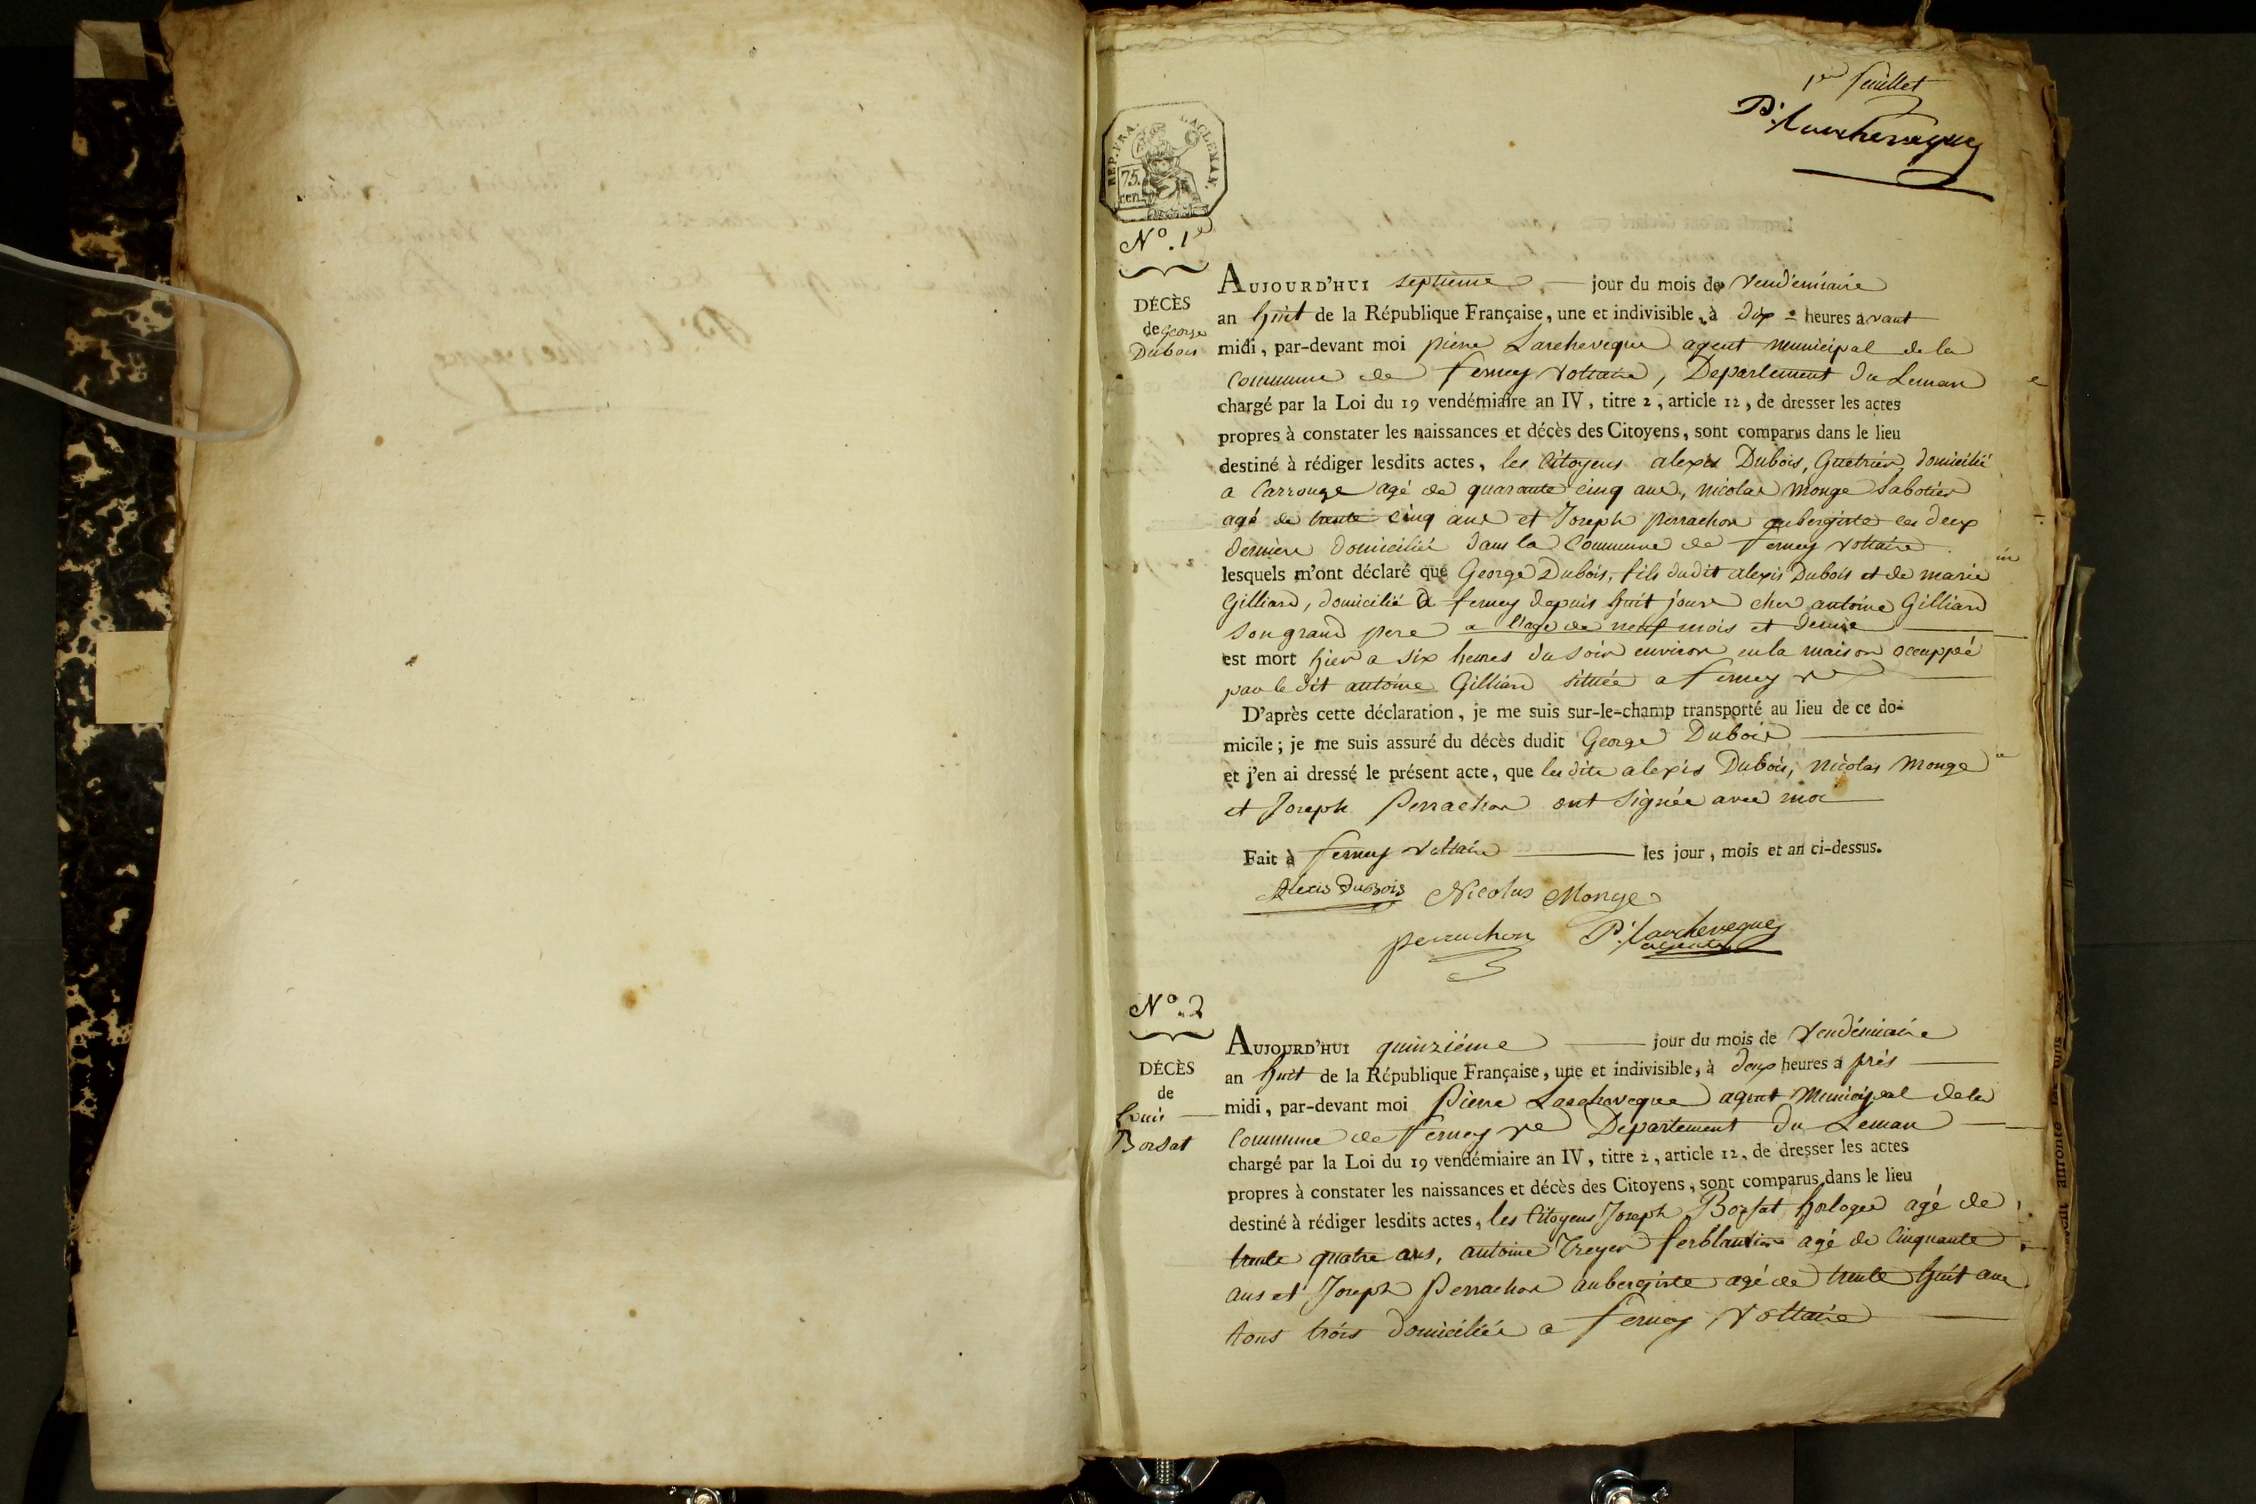 1er feuillet
Pre Larcheveque
REP. FRA. LAC LEMAN.
75. cen.
No. 1er
DÉCÈS
de George
Dubois
AUJOURD'HUI septieme jour du mois de Vendémiaire
an huit de la République Française, une et indivisible, à dix heures avant
midi, par-devant moi pierre Larcheveque agent municipal de la
Commune de ferney voltaire, Departement du Leman
chargé par la Loi du 19 vendémiaire an IV, titre 2, article 12, de dresser les actes
propres à constater les naissances et décès des Citoyens, sont comparus dans le lieu
destiné à rédiger lesdits actes, les Citoyens alexis Dubois, Guetrier, domicilié
a Carrouge agé de quarante cinq ans, nicolas Monge Sabotier
agé de trente cinq ans et Joseph perrachon aubergiste les deux
derniers domiciliés dans la Commune de ferney voltaire
lesquels m'ont déclaré que George Dubois, fils dudit alexis Dubois et de marie
Gilliard, domicilié a ferney depuis huit jours chez antoine Gilliard
son grand pere a l'age de neuf mois et demie
est mort hier a six heures du soir environ en la maison occuppé
par le dit antoine Gilliard située a ferney ve
D'après cette déclaration, je me suis sur-le-champ transporté au lieu de ce do-
micile; je me suis assuré du décès dudit George Dubois
et j'en ai dressé le présent acte, que les dits alexis Dubois, nicolas Monge
et Joseph Perrachon ont signés avec moi
Fait à ferney voltaire les jour, mois et an ci-dessus.
Alexis DuBois Nicolas Monge
perrachon Pre Larcheveque
agent
No. 2
DÉCÈS
de
Louis
Borsat
AUJOURD'HUI quinziéme jour du mois de Vendémiaire
an huit de la République Française, une et indivisible, à deux heures a prés
midi, par-devant moi Pierre Larcheveque agent Municipal de la
Commune de ferney ve Departement du Leman
chargé par la Loi du 19 vendémiaire an IV, titre 2, article 12, de dresser les actes
propres à constater les naissances et décès des Citoyens, sont comparus dans le lieu
destiné à rédiger lesdits actes, les Citoyens Joseph Borsat horloger agé de
trente quatre ans, antoine Treyer ferblantier agé de Cinquante
ans et Joseph Perrachon aubergiste agé de trente huit ans
tous trois domiciliés a ferney Voltaire